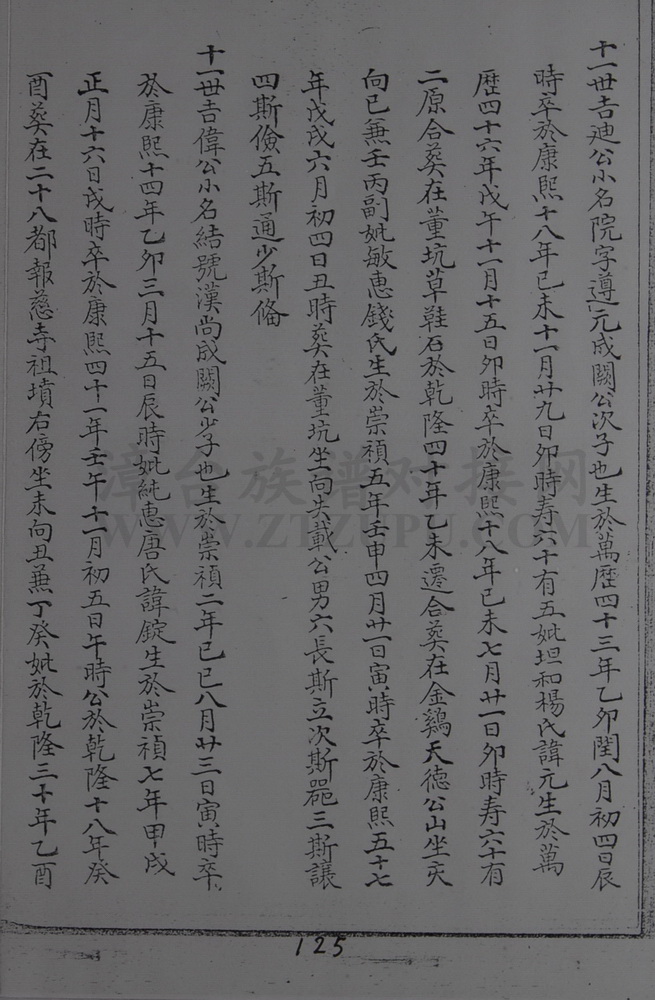 十一世吉迪公小名院字遵元成闕公次子也生於萬歷四十三年乙卯閏八月初四日辰
時卒於康熙十八年己未十一月廿九日卯時寿六十有五妣坦和楊氏諱元生於萬
歷四十六年戊午十一月十五日卯時卒於康熙十八年己未七月廿一日卯時寿六十有
二原合葬在董坑草鞋石於乾隆四十年乙未遷合葬在金鷄天德公山坐亥
向巳兼壬丙副妣敏惠錢氏生於崇禎五年壬申四月廿一日寅時卒於康熙五十七
年戊戌六月初四日丑時葬在董坑坐向失載公男六長斯立次斯噐三斯讓
四斯儉五斯通少斯脩
十一世吉偉公小名結號漢尚成闕公少子也生於崇禎二年己巳八月廿三日寅時卒
於康熙十四年乙卯三月十五日辰時妣純惠唐氏諱錠生於崇禎七年甲戌
正月十六日戌時卒於康熙四十一年壬午十一月初五日午時公於乾隆十八年癸
酉葬在二十八都報慈寺祖墳右傍坐未向丑兼丁癸妣於乾隆三十年乙酉
125
漳台族谱对接网
WWW.ZTZUPU.COM